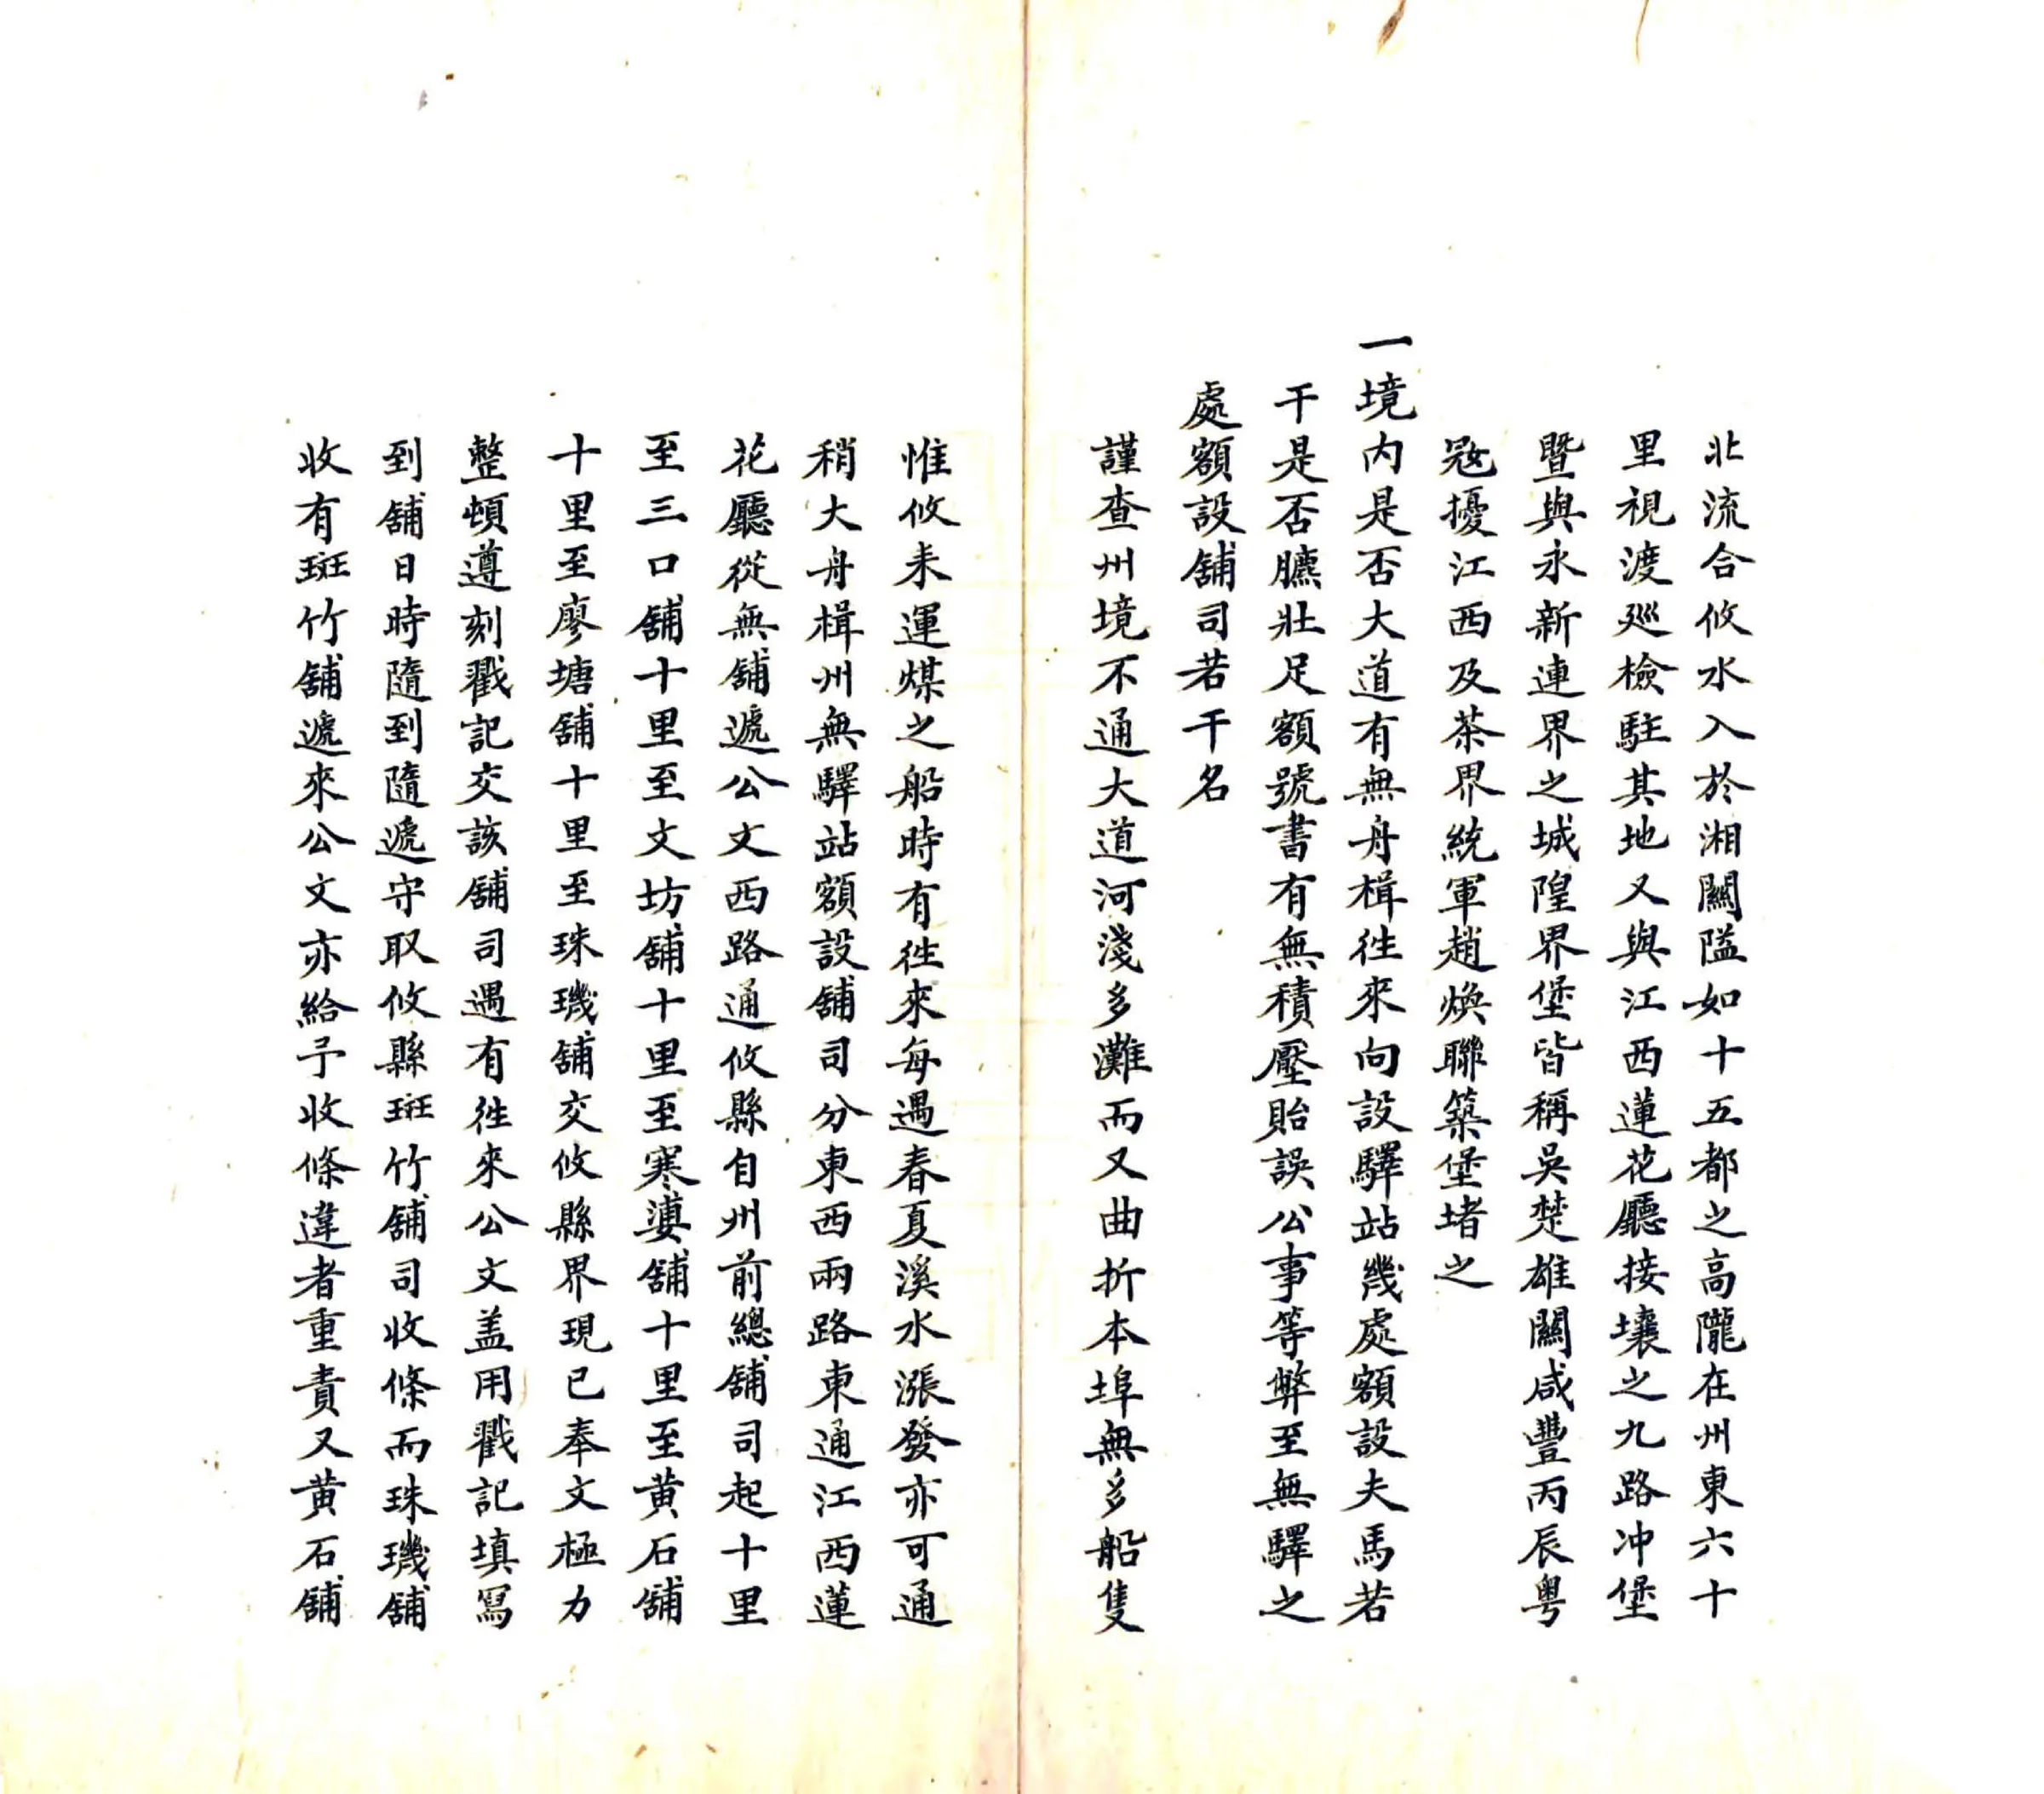 北流合攸水入於湘關隘如十五都之高隴在州東六十
里視渡廵檢駐其地又與江西蓮花廳接壤之九路冲堡
暨與永新連界之城隍界堡皆稱吳楚雄關咸豐丙辰粤
冦擾江西及茶界統軍趙煥聯築堡堵之
一境内是否大道有無舟楫徃來向設驛站幾處額設夫馬若
干是否臕壯足額號書有無積壓貽誤公事等弊至無驛之
處額設舖司若干名
謹查州境不通大道河淺多灘而又曲折本埠無多船隻
惟攸耒運煤之船時有徃來每遇春夏溪水漲發亦可通
稍大舟楫州無驛站額設舖司分東西兩路東通江西蓮
花廳從無舖遞公文西路通攸縣自州前總舖司起十里
至三口舖十里至文坊舖十里至寒婆舖十里至黄石舖
十里至廖塘舖十里至珠璣舖交攸縣界現已奉文極力
整頓遵刻戳記交該舖司遇有徃來公文盖用戳記填寫
到舖日時隨到隨遞守取攸縣斑竹舖司收條而珠璣舖
收有斑竹舖遞來公文亦給予收條違者重責又黄石舖